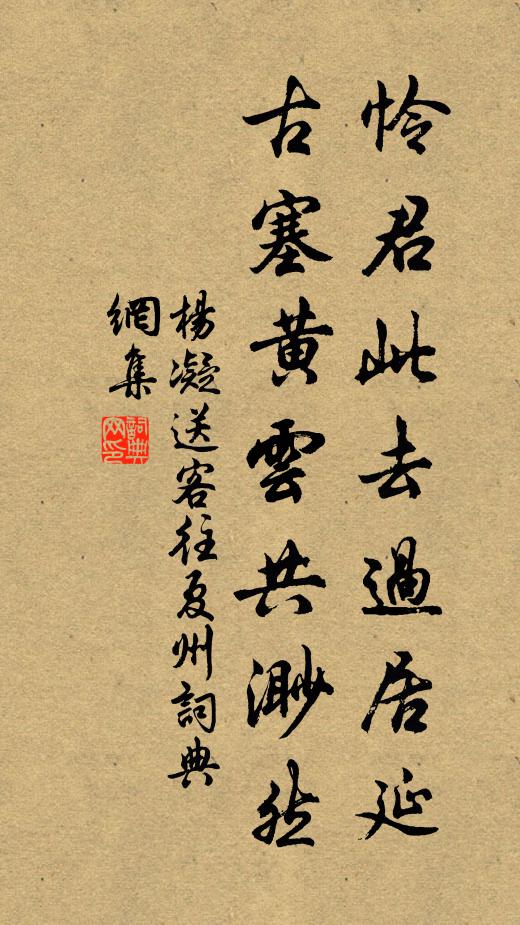 怜君此去過居延
古塞黃雲共渺然
楊凝送客往夏州詞典
網集
詞典網印